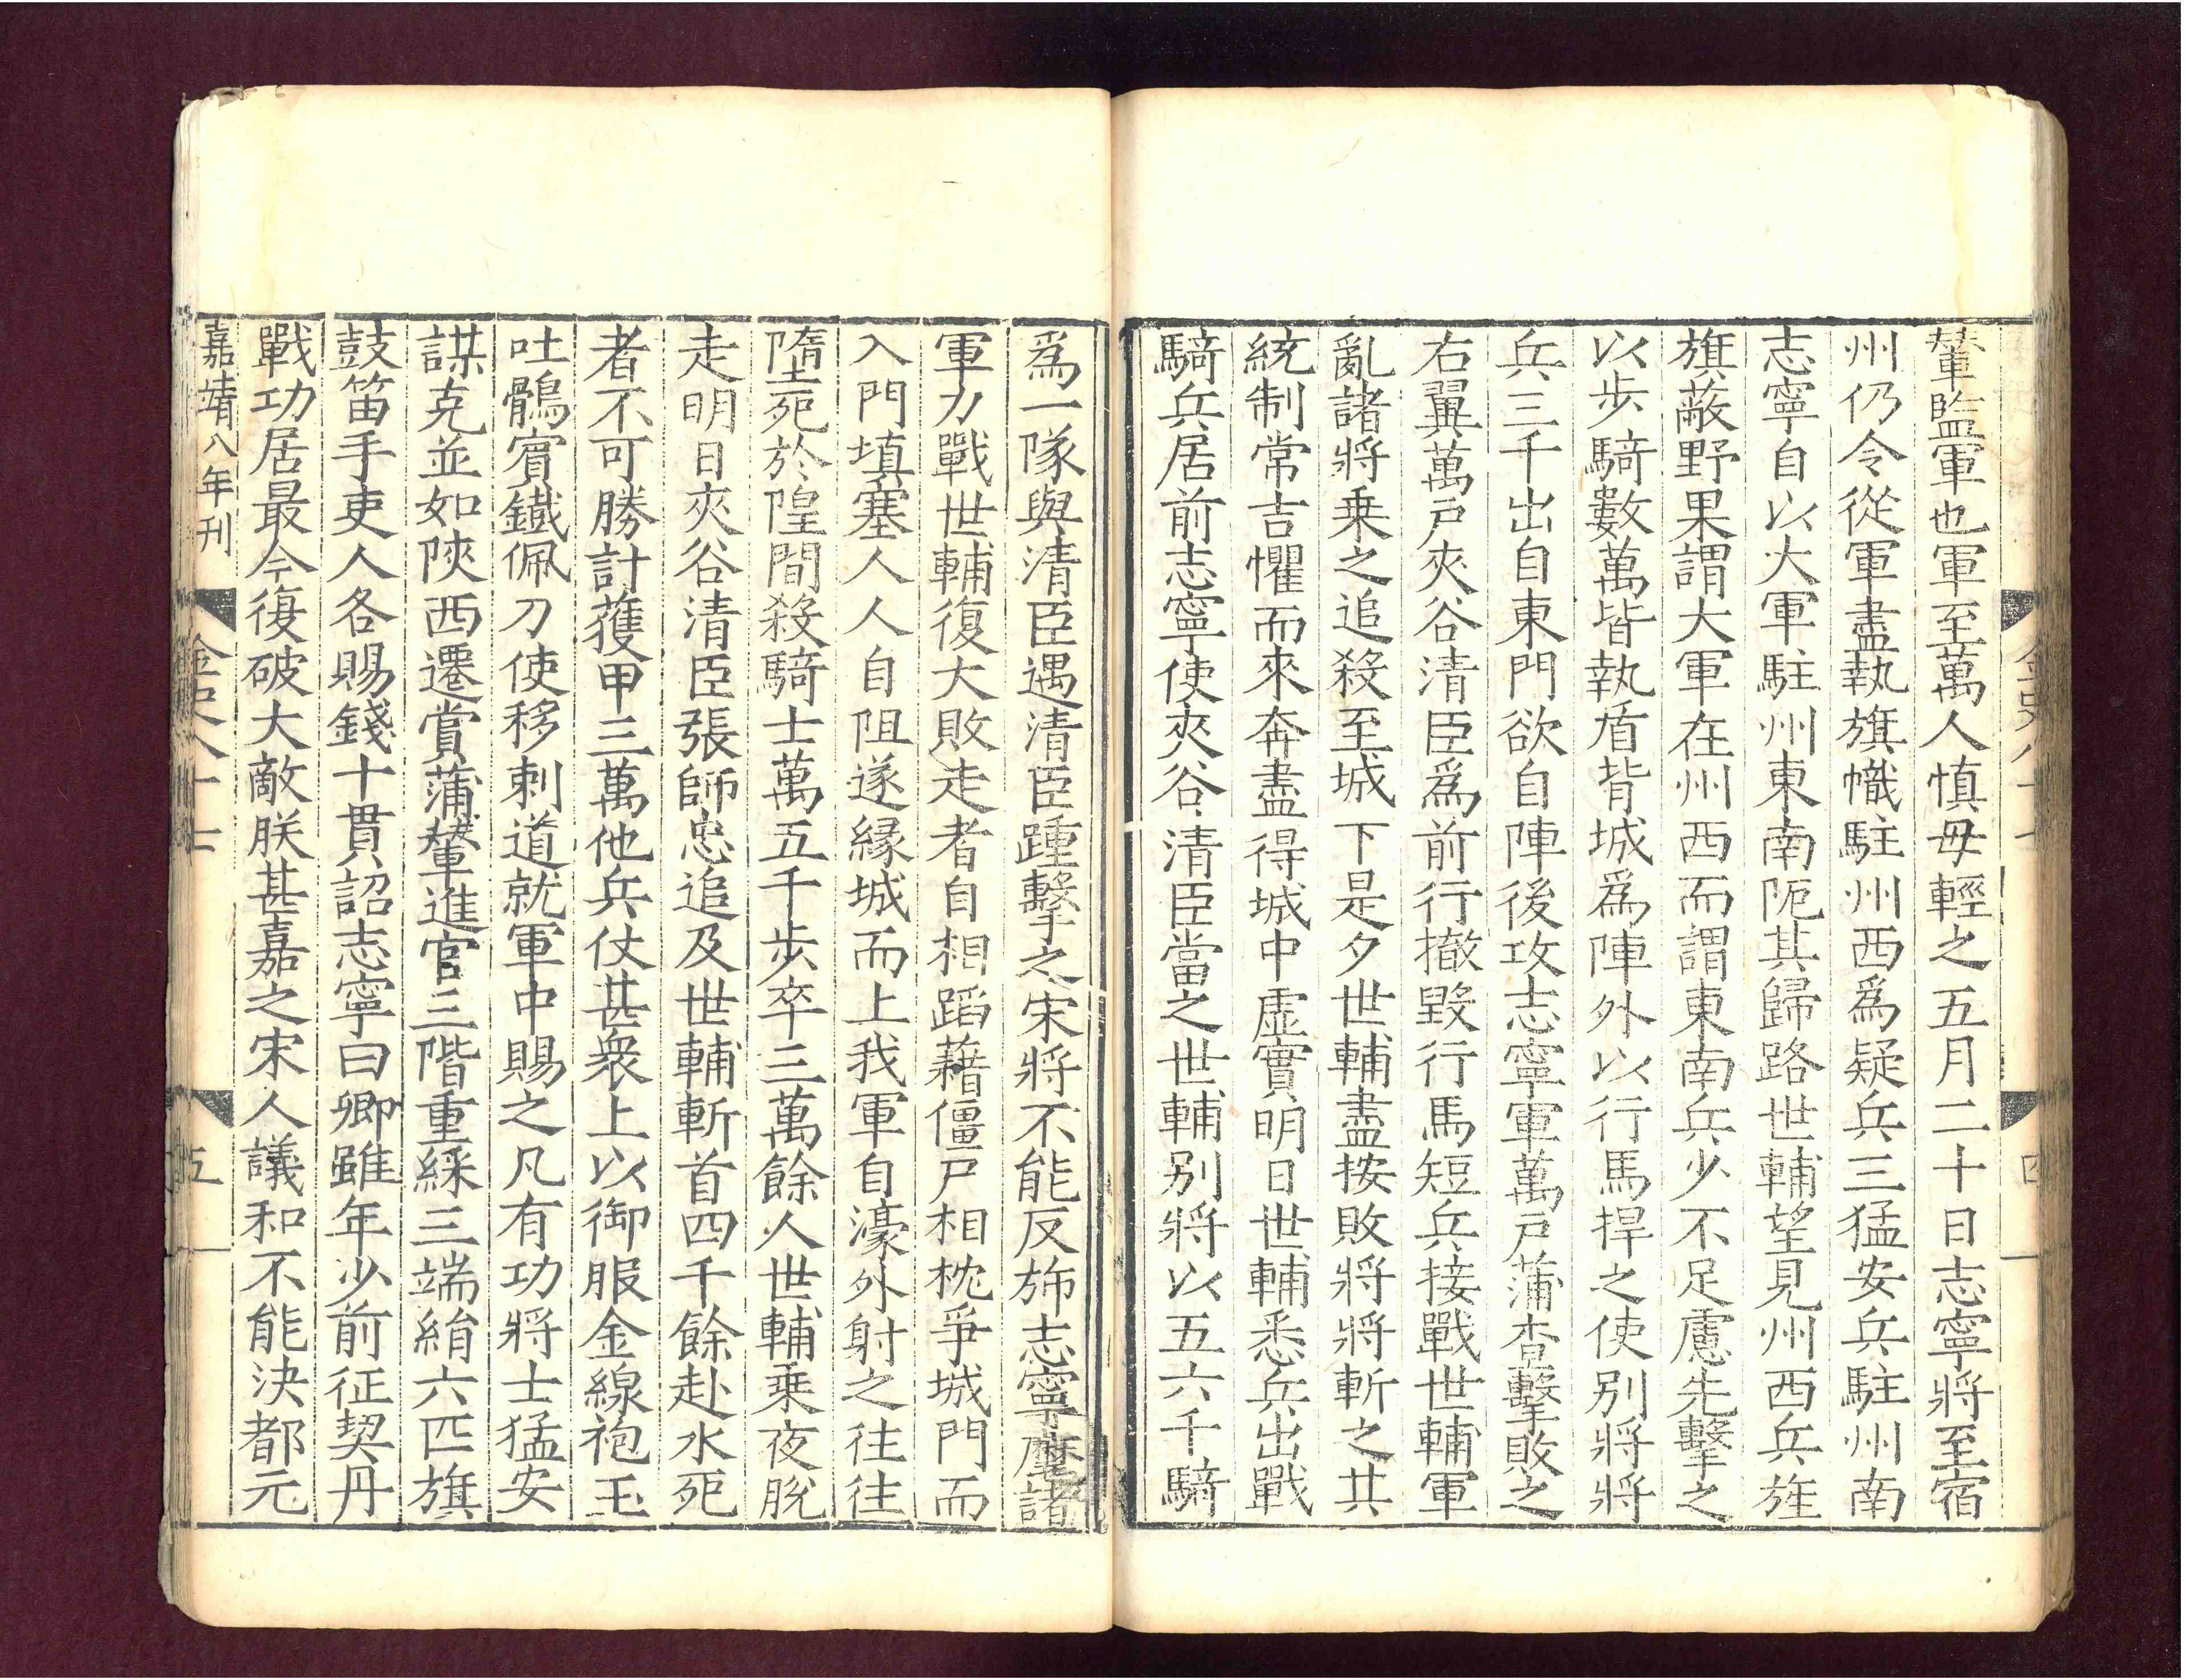 金史八十七
四
輦監軍也軍至萬人慎毋輕之五月二十日志寧將至宿
州仍令從軍盡執旗幟駐州西爲疑兵三猛安兵駐州南
志寧自以大軍駐州東南阨其歸路世輔望見州西兵旌
旗蔽野果謂大軍在州西而謂東南兵少不足慮先擊之
以步騎數萬皆執盾背城爲陣外以行馬捍之使别將將
兵三千出自東門欲自陣後攻志寧軍萬戸蒲查擊敗之
右翼萬戸夾谷清臣爲前行撤毀行馬短兵接戰世輔軍
亂諸將乗之追殺至城下是夕世輔盡按敗將將斬之其
統制常吉懼而來奔盡得城中虛實明日世輔悉兵出戰
騎兵居前志寧使夾谷清臣當之世輔别將以五六千騎
爲一隊與清臣遇清臣踵擊之宋將不能反斾志寧麾諸
軍力戰世輔復大敗走者自相蹈藉僵尸相枕爭城門而
入門填塞人人自阻遂緣城而上我軍自濠外射之往往
墮死於隍間殺騎士萬五千步卒三萬餘人世輔乗夜脫
走明日夾谷清臣張師忠追及世輔斬首四千餘赴水死
者不可勝計獲甲三萬他兵仗甚衆上以御服金線袍玉
吐鶻賓鐵佩刀使移剌道就軍中賜之凡有功將士猛安
謀克並如陝西遷賞蒲輦進官三階重綵三端絹六匹旗
鼓笛手吏人各賜錢十貫詔志寧曰卿雖年少前征契丹
戰功居最今復破大敵朕甚嘉之宋人議和不能決都元
嘉靖八年刊
金史八十七
五